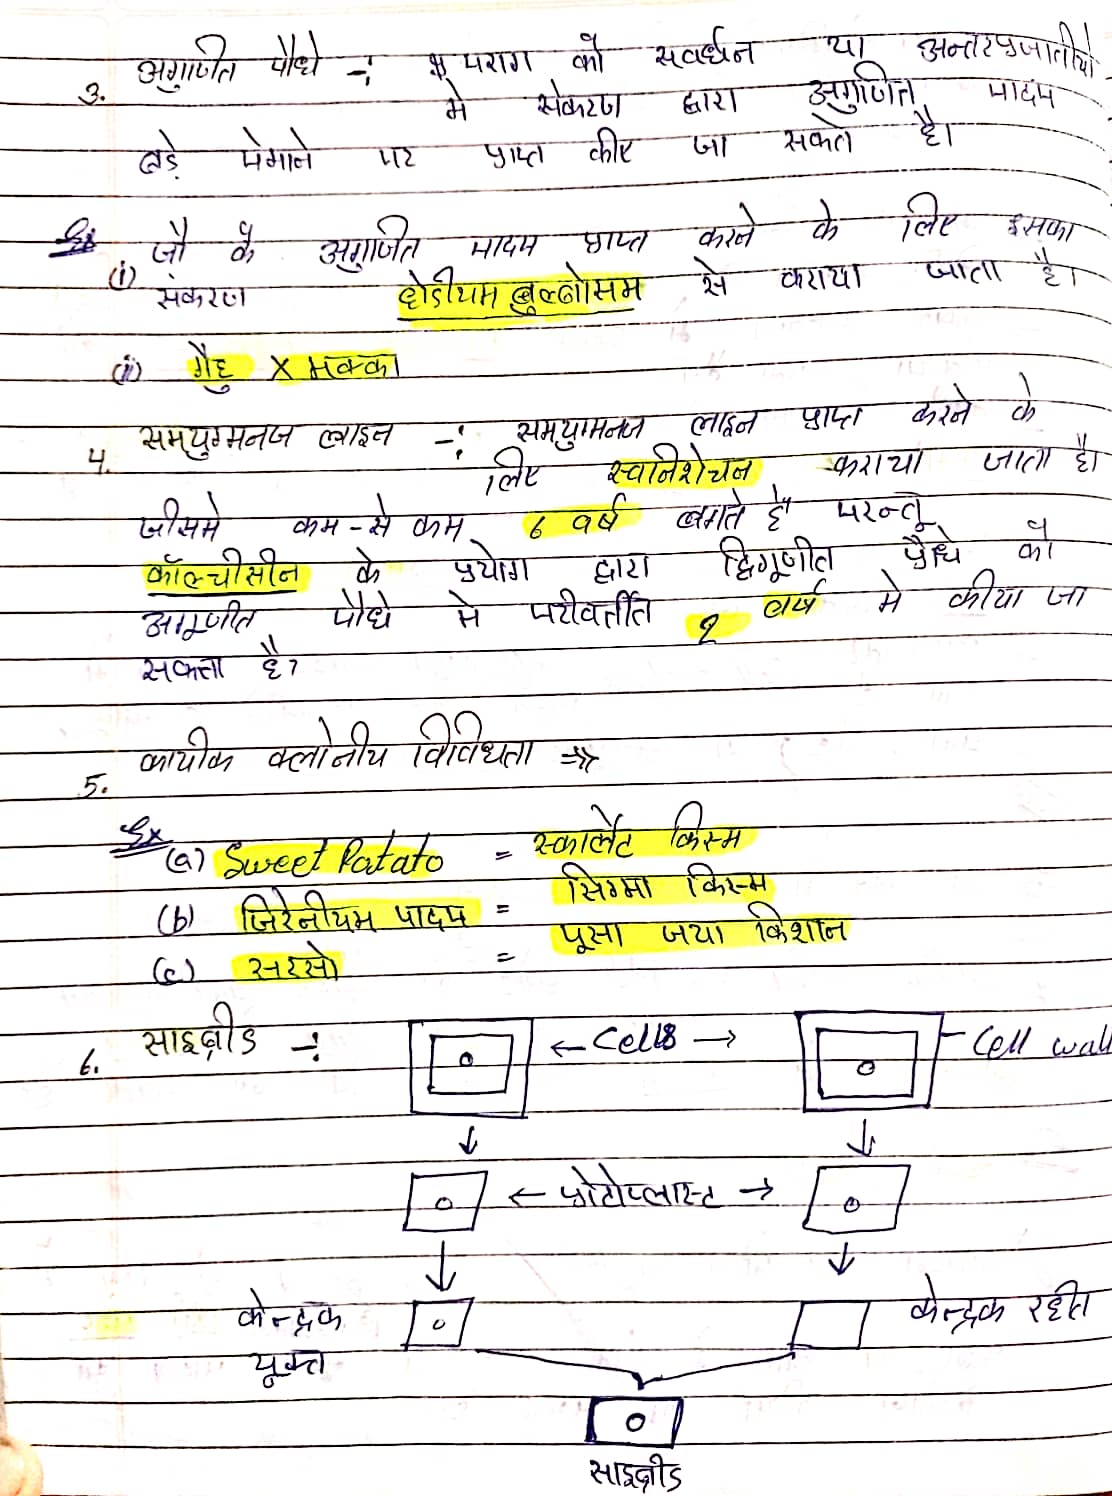 3. अगुणित पौधे -: पराग को सवर्धन या अन्तरप्रजातीयो
मे संकरण द्वारा अगुणित पादप
बड़े पेमाने पर प्राप्त कीए जा सकते है।
Ex (i) जौ के अगुणित पादप प्राप्त करने के लिए इसका
संकरण होर्डीयम बुल्बोसम से कराया जाता है।
(ii) गैहू X मक्का
4. समयुग्मनज लाइन -: समयुग्मनज लाइन प्राप्त करने के
लिए स्वनिशेचन कराया जाता है।
जीसमे कम-से कम 6 वर्ष लगते है परन्तू
कॉल्चीसीन के प्रयोग द्वारा द्विगूणीत पौधे को
अगूणीत पौधे मे परीवर्तीत 2 वर्ष मे कीया जा
सकता है।
5. कायीक क्लोनीय विविधता ⇒
Ex (a) Sweet Patato = स्कार्लेट किस्म
(b) जिरेनीयम पादप = सिग्मा किस्म
(c) सरसो = पूसा जया किशान
6. साइब्रीड -: ← Cells → Cell wall
← प्रोटोप्लास्ट →
केन्द्रक युक्त केन्द्रक रहीत
साइब्रीड